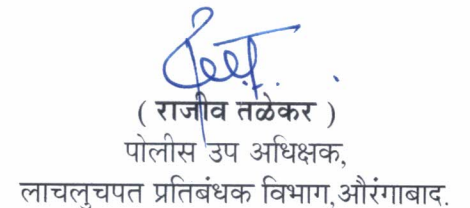 ( राजीव तळेकर )
पोलीस उप अधिक्षक,
लाचलुचपत प्रतिबंधक विभाग,औरंगाबाद.